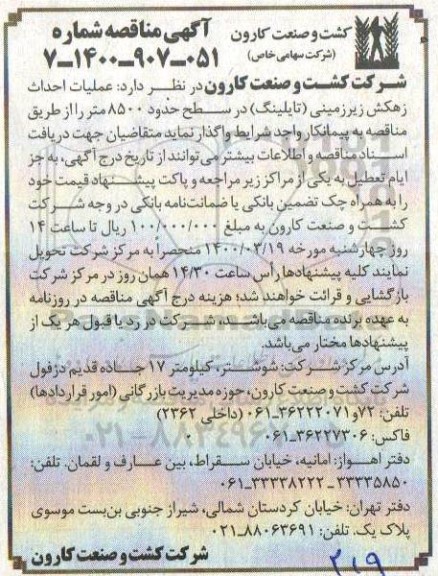 کشت و صنعت کارون
(شرکت سهامی خاص)
آگهی مناقصه شماره
۷-۱۴۰۰-۹۰۷-۰۵۱
شرکت کشت و صنعت کارون در نظر دارد: عملیات احداث
زهکش زیرزمینی (تایلینگ) در سطح حدود ۸۵۰۰ متر را از طریق
مناقصه به پیمانکار واجد شرایط واگذار نماید متقاضیان جهت دریافت
اسناد مناقصه و اطلاعات بیشتر می‌توانند از تاریخ درج آگهی، به جز
ایام تعطیل به یکی از مراکز زیر مراجعه و پاکت پیشنهاد قیمت خود
را به همراه چک تضمین بانکی یا ضمانت‌نامه بانکی در وجه شرکت
کشت و صنعت کارون به مبلغ ۱۰۰/۰۰۰/۰۰۰ ریال تا ساعت ۱۴
روز چهارشنبه مورخه ۱۴۰۰/۰۳/۱۹ منحصراً به مرکز شرکت تحویل
نمایند کلیه پیشنهادها رأس ساعت ۱۴/۳۰ همان روز در مرکز شرکت
بازگشایی و قرائت خواهند شد؛ هزینه درج آگهی مناقصه در روزنامه
به عهده برنده مناقصه می‌باشد، شرکت در رد یا قبول هر یک از
پیشنهادها مختار می‌باشد.
آدرس مرکز شرکت: شوشتر، کیلومتر ۱۷ جاده قدیم دزفول
شرکت کشت و صنعت کارون، حوزه مدیریت بازرگانی (امور قراردادها)
تلفن: ۷۲ و ۳۶۲۲۲۰۷۱-۰۶۱ (داخلی ۲۳۶۲)
فاکس: ۳۶۲۲۷۳۰۶-۰۶۱
دفتر اهواز: امانیه، خیابان سقراط، بین عارف و لقمان. تلفن:
۳۳۳۳۵۸۵۰ - ۳۳۳۳۸۲۲۲-۰۶۱
دفتر تهران: خیابان کردستان شمالی، شیراز جنوبی بن‌بست موسوی
پلاک یک. تلفن: ۸۸۰۶۳۶۹۱-۰۲۱
شرکت کشت و صنعت کارون
۲۱۹